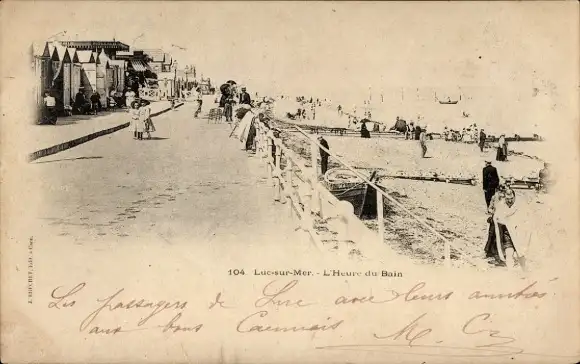 104 Luc-sur-Mer. - L'Heure du Bain
Les passagers de avec leurs amitiés
aux bons Caennais M.